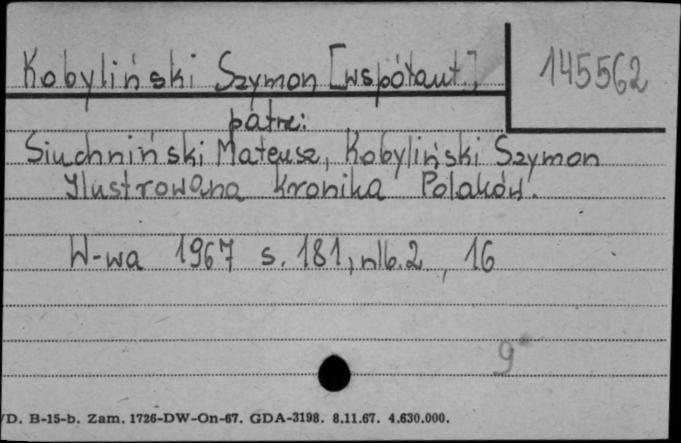 Kobyliński Szymon [współaut.]
145562
patrz:
Siuchniński Mateusz, Kobyliński Szymon
Ilustrowana Kronika Polaków.
W-wa 1967 s. 181, nlb. 2, 16
9
/D. B-15-b. Zam. 1726-DW-On-67. GDA-3198. 8.11.67. 4.630.000.